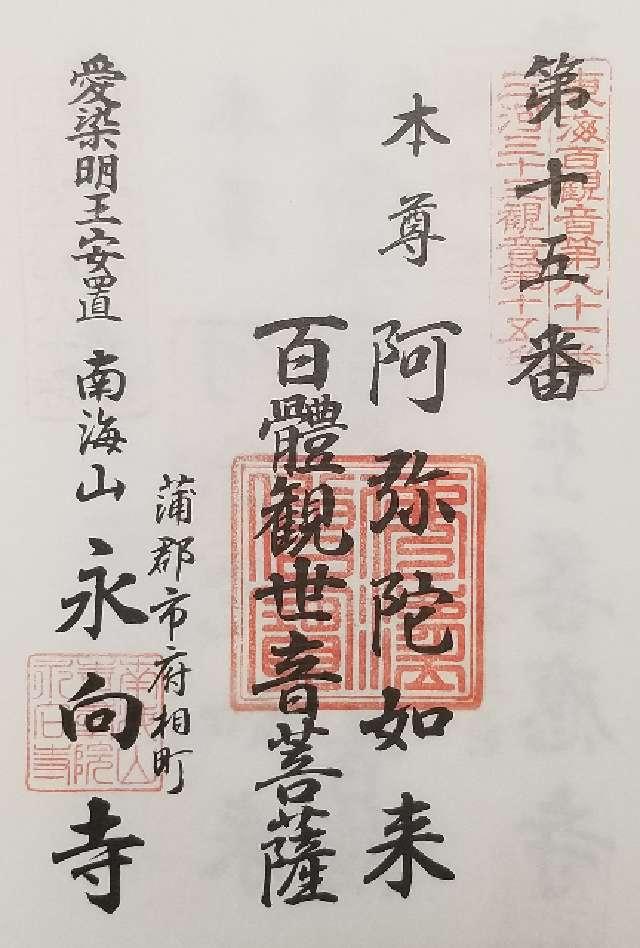 第十五番
東海百観音第八十一番
三河三十三観音第十五番
本尊 阿弥陀如来
百體観世音菩薩
蒲郡市府相町
愛染明王安置 南海山 永向寺